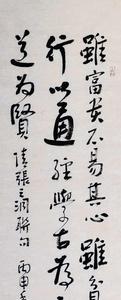 雖富貴不易其心雖貧
行以通經學古為
道為賢 清張之洞聯句 丙申